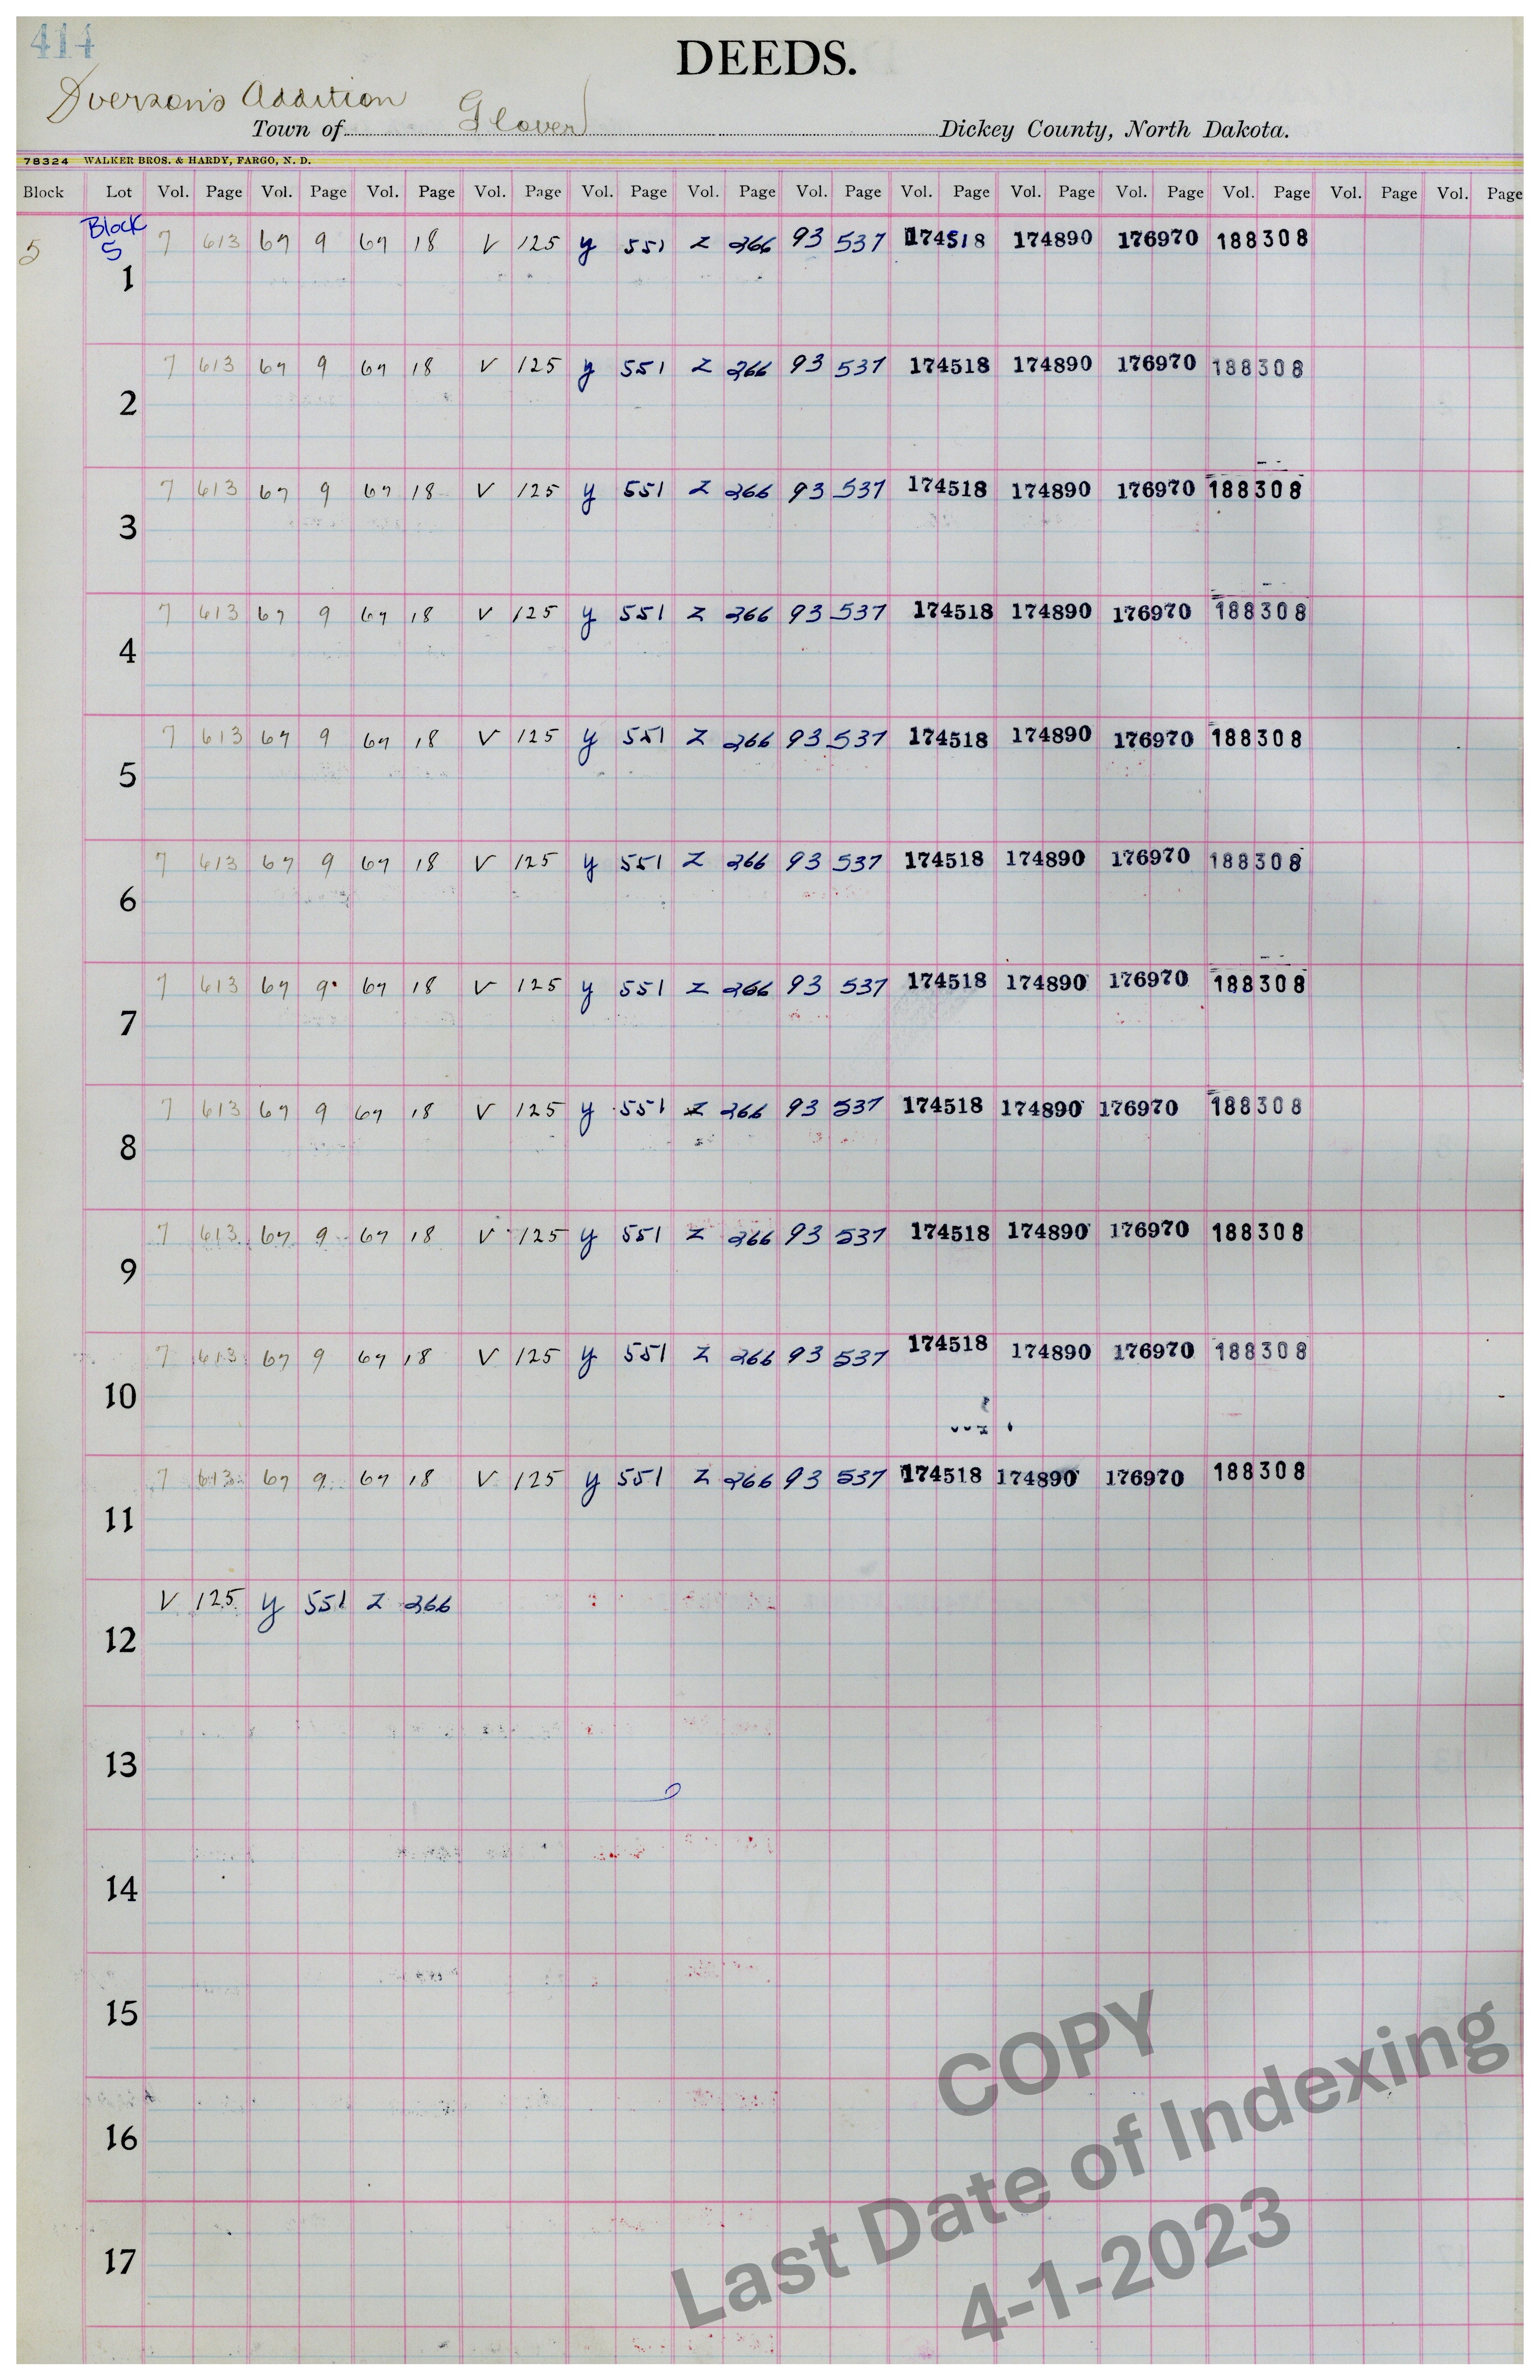 414
DEEDS.
Iverson's Addition
Town of Glover Dickey County, North Dakota.
78324 WALKER BROS. & HARDY, FARGO, N. D.
Block Lot Vol. Page Vol. Page Vol. Page Vol. Page Vol. Page Vol. Page Vol. Page Vol. Page Vol. Page Vol. Page Vol. Page Vol. Page Vol. Page
Block
5 5 7 613 67 9 67 18 V 125 y 551 Z 366 93 537 174518 174890 176970 188308
1
7 613 67 9 67 18 V 125 y 551 Z 366 93 537 174518 174890 176970 188308
2
7 613 67 9 67 18 V 125 y 551 Z 366 93 537 174518 174890 176970 188308
3
7 613 67 9 67 18 V 125 y 551 Z 366 93 537 174518 174890 176970 188308
4
7 613 67 9 67 18 V 125 y 551 Z 366 93 537 174518 174890 176970 188308
5
7 613 67 9 67 18 V 125 y 551 Z 366 93 537 174518 174890 176970 188308
6
7 613 67 9 67 18 V 125 y 551 Z 366 93 537 174518 174890 176970 188308
7
7 613 67 9 67 18 V 125 y 551 Z 366 93 537 174518 174890 176970 188308
8
7 613 67 9 67 18 V 125 y 551 Z 366 93 537 174518 174890 176970 188308
9
7 613 67 9 67 18 V 125 y 551 Z 366 93 537 174518 174890 176970 188308
10
7 613 67 9 67 18 V 125 y 551 Z 366 93 537 174518 174890 176970 188308
11
V 125 y 551 Z 366
12
13
14
15
16
17
COPY
Last Date of Indexing
4-1-2023